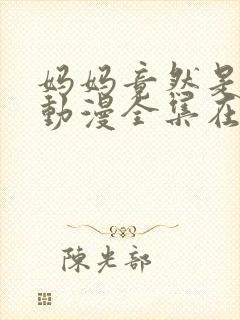 妈妈竟然是
動漫全集在
陳光部